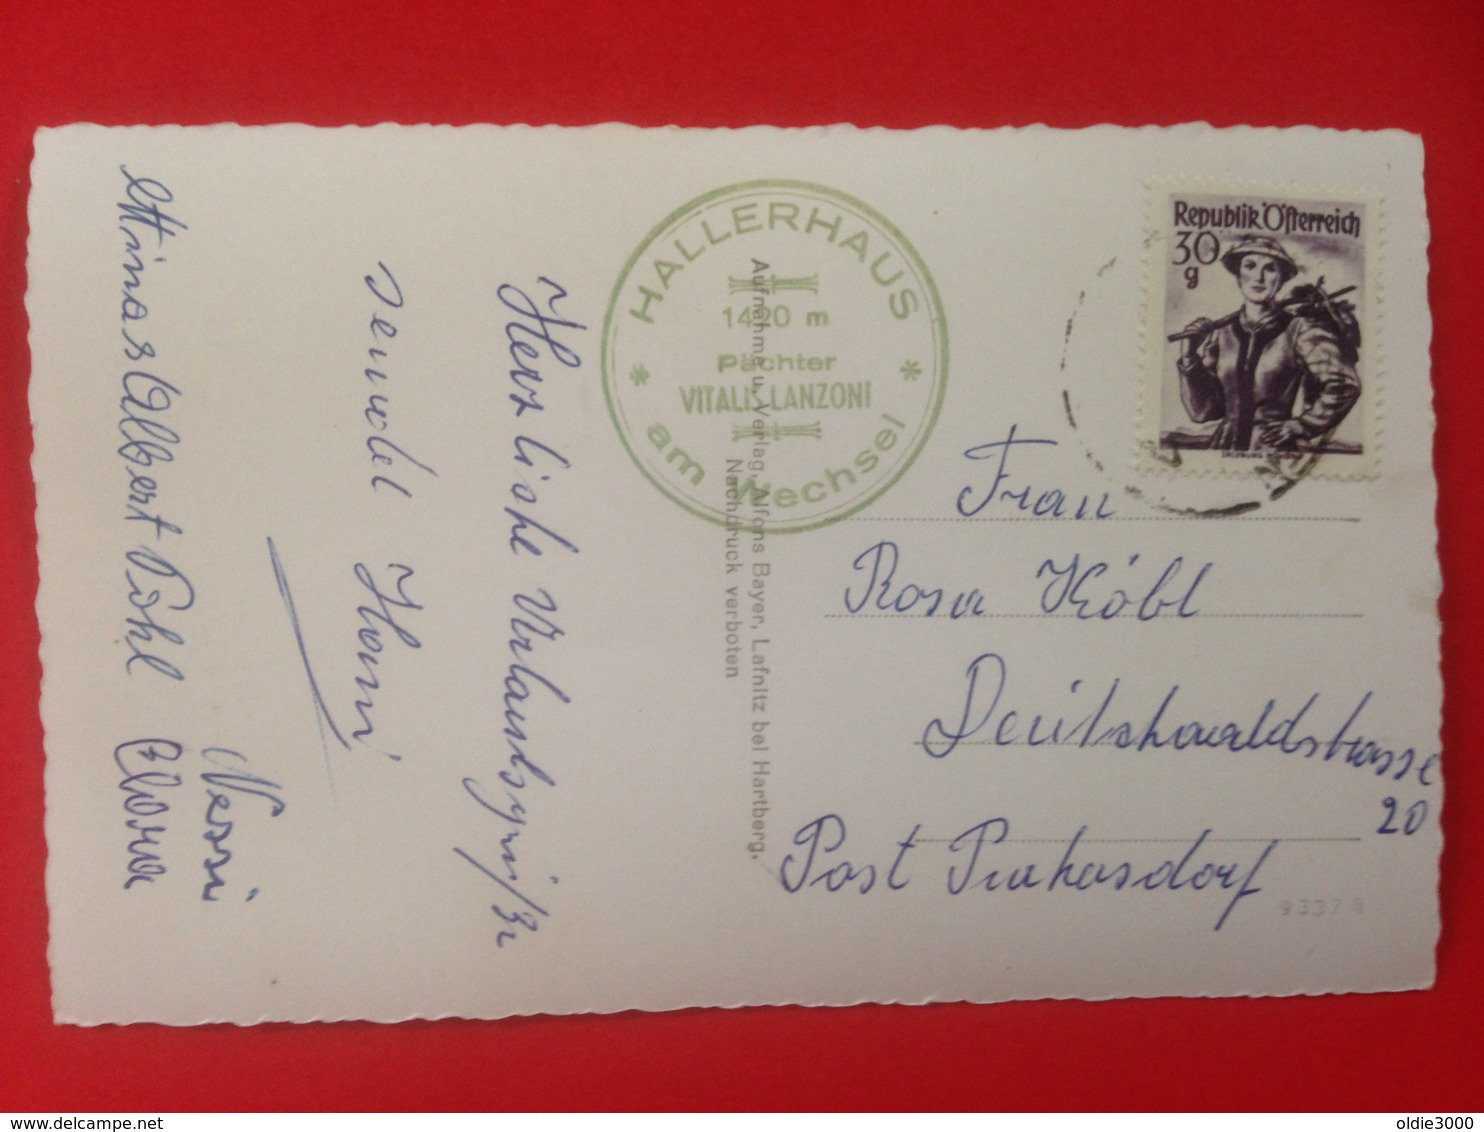 Herzliche Urlaubsgrüße
sendet Hansi
Minas Albert Pohl
Nessi
HALLERHAUS
1420 m
Pächter
VITALIS LANZONI
* am Wechsel *
Aufnahme u. Verlag, Alfons Bayer, Lafnitz bei Hartberg.
Nachdruck verboten
Republik Österreich
30
g
Frau
Rosa Köbl
Deutschwaldstrasse
20
Post Purkersdorf
9337
delcampe.net
oldie3000